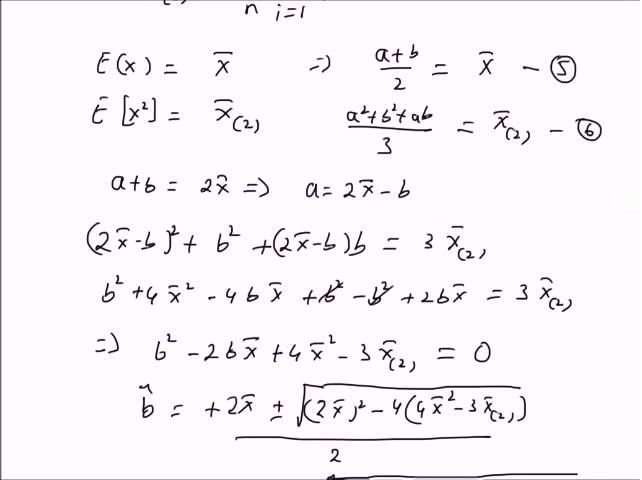 n i=1
E(x) = x̄ => (a+b)/2 = x̄ - ⑤
E[x²] = x̄₍₂₎ (a²+b²+ab)/3 = x̄₍₂₎ - ⑥
a+b = 2x̄ => a = 2x̄ - b
(2x̄-b)² + b² + (2x̄-b)b = 3 x̄₍₂₎
b² + 4x̄² - 4bx̄ + b² - b² + 2bx̄ = 3 x̄₍₂₎
=> b² - 2bx̄ + 4x̄² - 3x̄₍₂₎ = 0
b̂ = (+2x̄ ± √((2x̄)² - 4(4x̄² - 3x̄₍₂₎)))/2